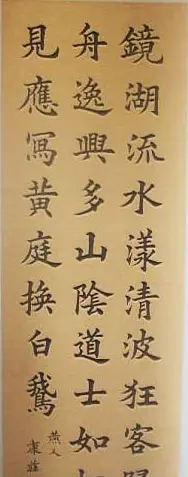 鏡湖流水漾清波狂客歸
舟逸興多山陰道士如相
見應寫黃庭換白鵝
燕人
康莊